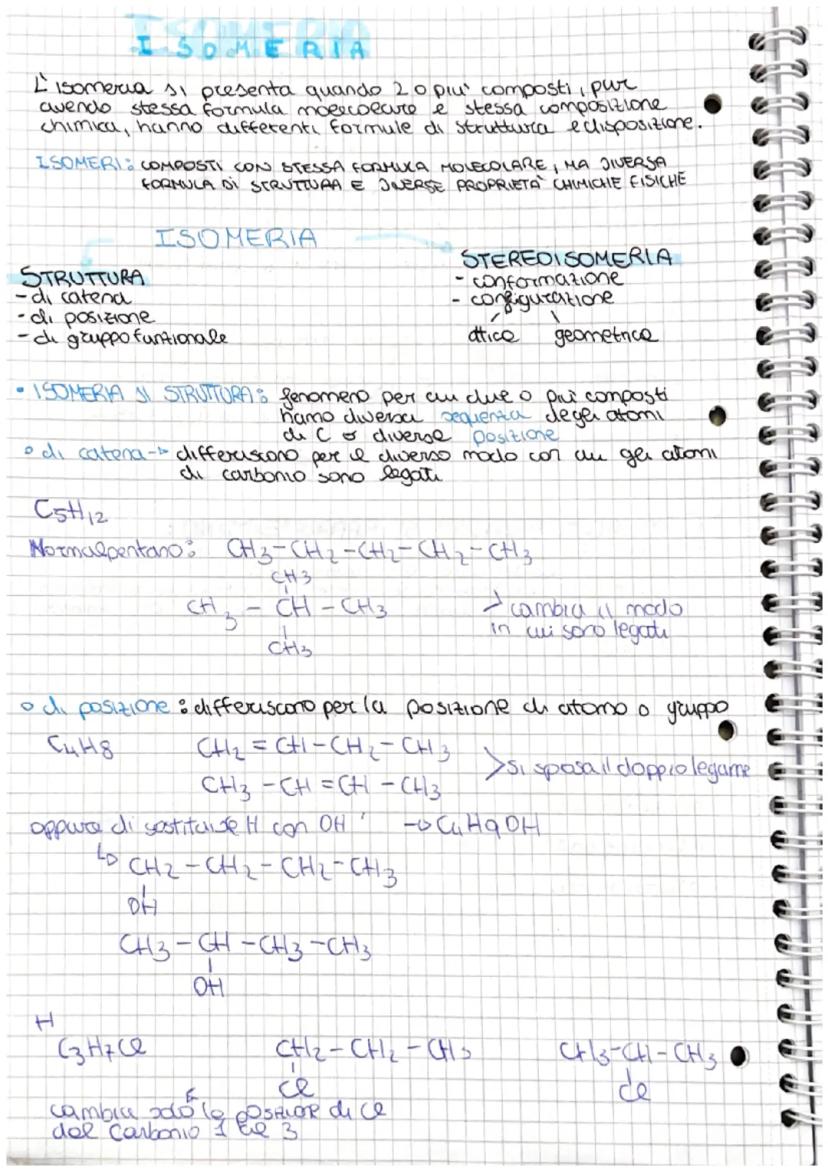 ISOMERIA
L'isomeria si presenta quando 2 o piu' composti, pur
avendo stessa formula molecolare e stessa composizione
chimica, hanno differenti formule di struttura e disposizione.
ISOMERI: COMPOSTI CON STESSA FORMULA MOLECOLARE, MA DIVERSA
FORMULA DI STRUTTURA E DIVERSE PROPRIETA' CHIMICHE FISICHE
ISOMERIA
STRUTTURA
- di catena
- di posizione
- di gruppo funzionale
STEREOISOMERIA
- conformazione
- configurazione
ottica geometrica
• ISOMERIA DI STRUTTURA: fenomeno per cui due o più composti
hanno diversa sequenza degli atomi
di C o diverse posizione
o di catena → differiscono per il diverso modo con cui gli atomi
di carbonio sono legati
C5H12
Normalpentano: CH3-CH2-CH2-CH2-CH3
CH3
CH3 - CH - CH3
CH3
> cambia il modo
in cui sono legati
o di posizione: differiscono per la posizione di atomo o gruppo
C4H8 CH2 = CH-CH2-CH3
CH3 - CH = CH - CH3
> si sposa il doppio legame
oppure di sostituisce H con OH → C4H9OH
↳ CH2-CH2-CH2-CH3
OH
CH3-CH-CH3-CH3
OH
H
C3H7Cl CH2-CH2-CH3 CH3-CH-CH3
Cl Cl
cambia solo la posizione di Cl
dal carbonio 1 al 3